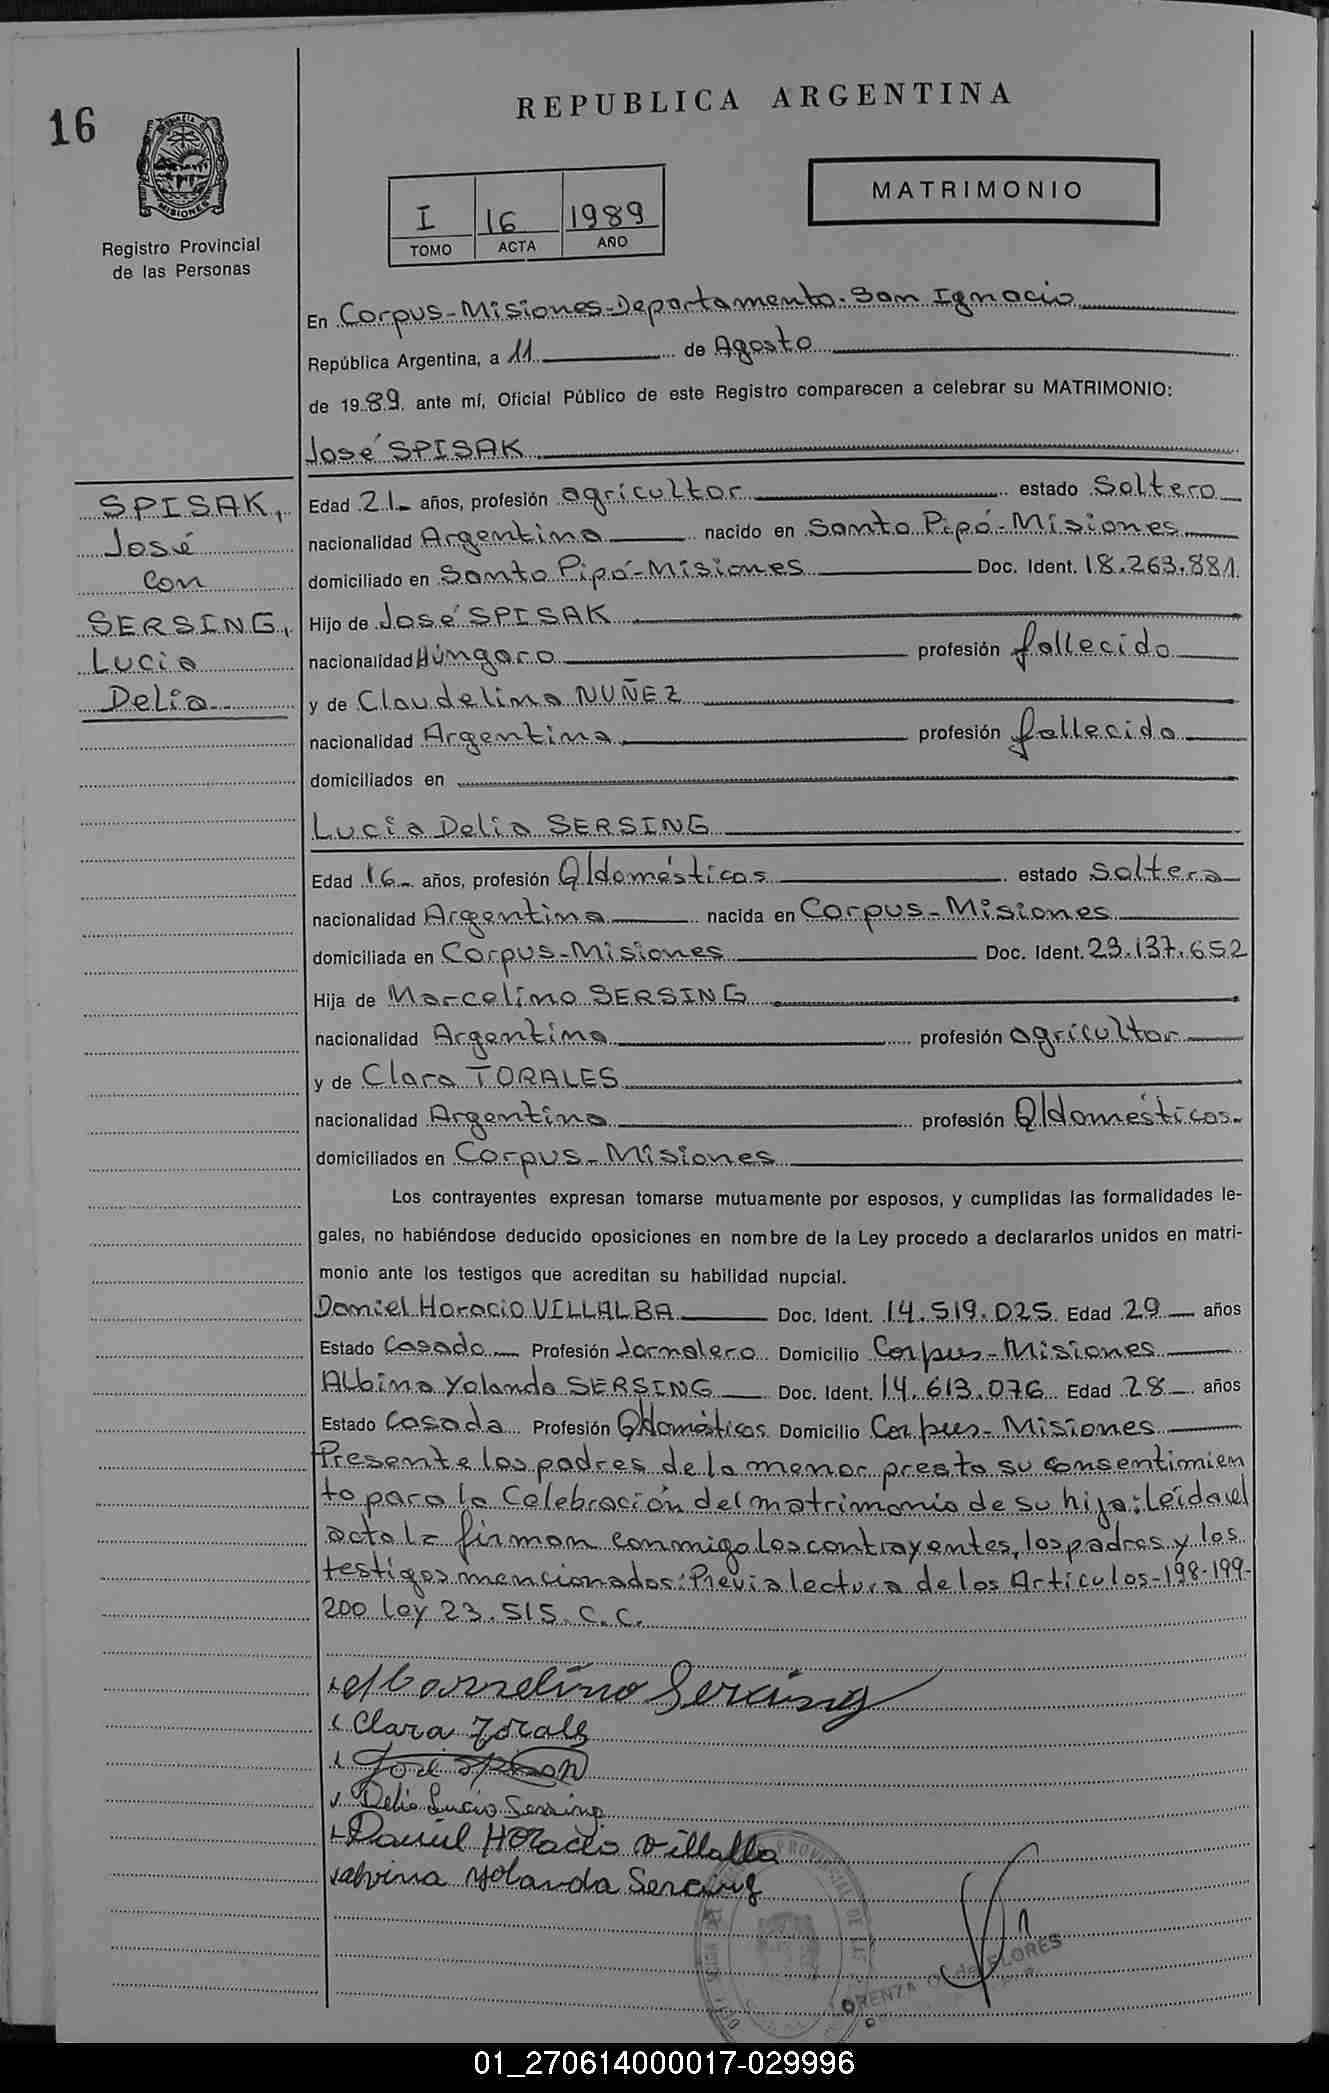 16
REPUBLICA ARGENTINA
MISIONES
Registro Provincial
de las Personas
I 16 1989
TOMO ACTA AÑO
MATRIMONIO
En Corpus-Misiones-Departamento-San Ignacio
República Argentina, a 11 de Agosto
de 1989 ante mí, Oficial Público de este Registro comparecen a celebrar su MATRIMONIO:
José SPISAK
SPISAK,
José
con
SERSING,
Lucia
Delia
Edad 21 años, profesión agricultor estado Soltero
nacionalidad Argentina nacido en Santo Pipó-Misiones
domiciliado en Santo Pipó-Misiones Doc. Ident. 18.263.881
Hijo de José SPISAK
nacionalidad Húngaro profesión fallecido
y de Claudelina NUÑEZ
nacionalidad Argentina profesión fallecida
domiciliados en
Lucia Delia SERSING
Edad 16 años, profesión Q/domésticos estado Soltera
nacionalidad Argentina nacida en Corpus-Misiones
domiciliada en Corpus-Misiones Doc. Ident. 23.137.652
Hija de Marcelino SERSING
nacionalidad Argentina profesión agricultor
y de Clara TORALES
nacionalidad Argentina profesión Q/domésticos
domiciliados en Corpus-Misiones
Los contrayentes expresan tomarse mutuamente por esposos, y cumplidas las formalidades le-
gales, no habiéndose deducido oposiciones en nombre de la Ley procedo a declararlos unidos en matri-
monio ante los testigos que acreditan su habilidad nupcial.
Daniel Horacio VILLALBA Doc. Ident. 14.519.025 Edad 29 años
Estado Casado Profesión Jornalero Domicilio Corpus-Misiones
Albina Yolanda SERSING Doc. Ident. 14.613.076 Edad 28 años
Estado Casada Profesión Q/domésticos Domicilio Corpus-Misiones
Presente los padres de la menor presta su consentimien
to para la Celebración del matrimonio de su hija: Leída el
acta la firman conmigo los contrayentes, los padres y los
testigos mencionados: Previa lectura de los Artículos-198-199-
200 Ley 23.515. C.C.
Marcelino Sersing
Clara Torales
José
Delia Lucia Sersing
Daniel Horacio Villalba
Alvina Yolanda Sercing
de FLORES
01_270614000017-029996